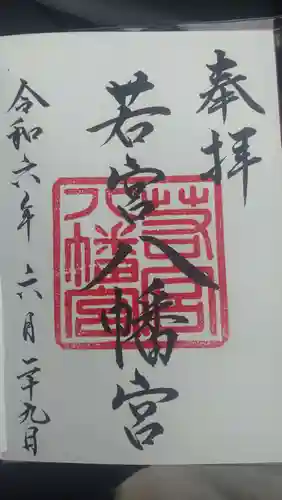 奉拝
若宮八幡宮
若宮
八幡宮
令和六年 六月 二十九日